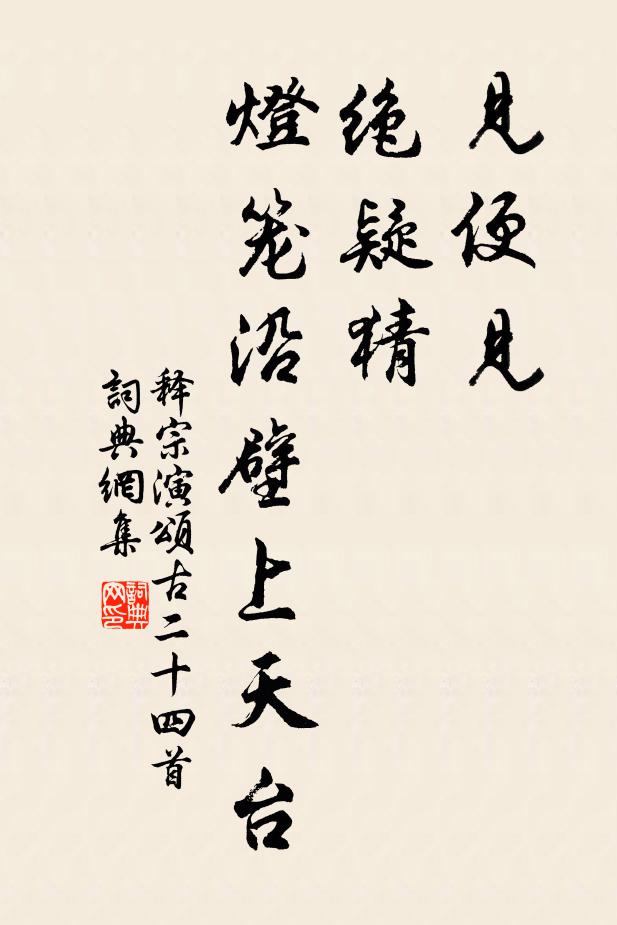 見便見
绝疑猜
燈笼沿壁上天台
释宗演頌古二十四首
詞典網集
詞典网印